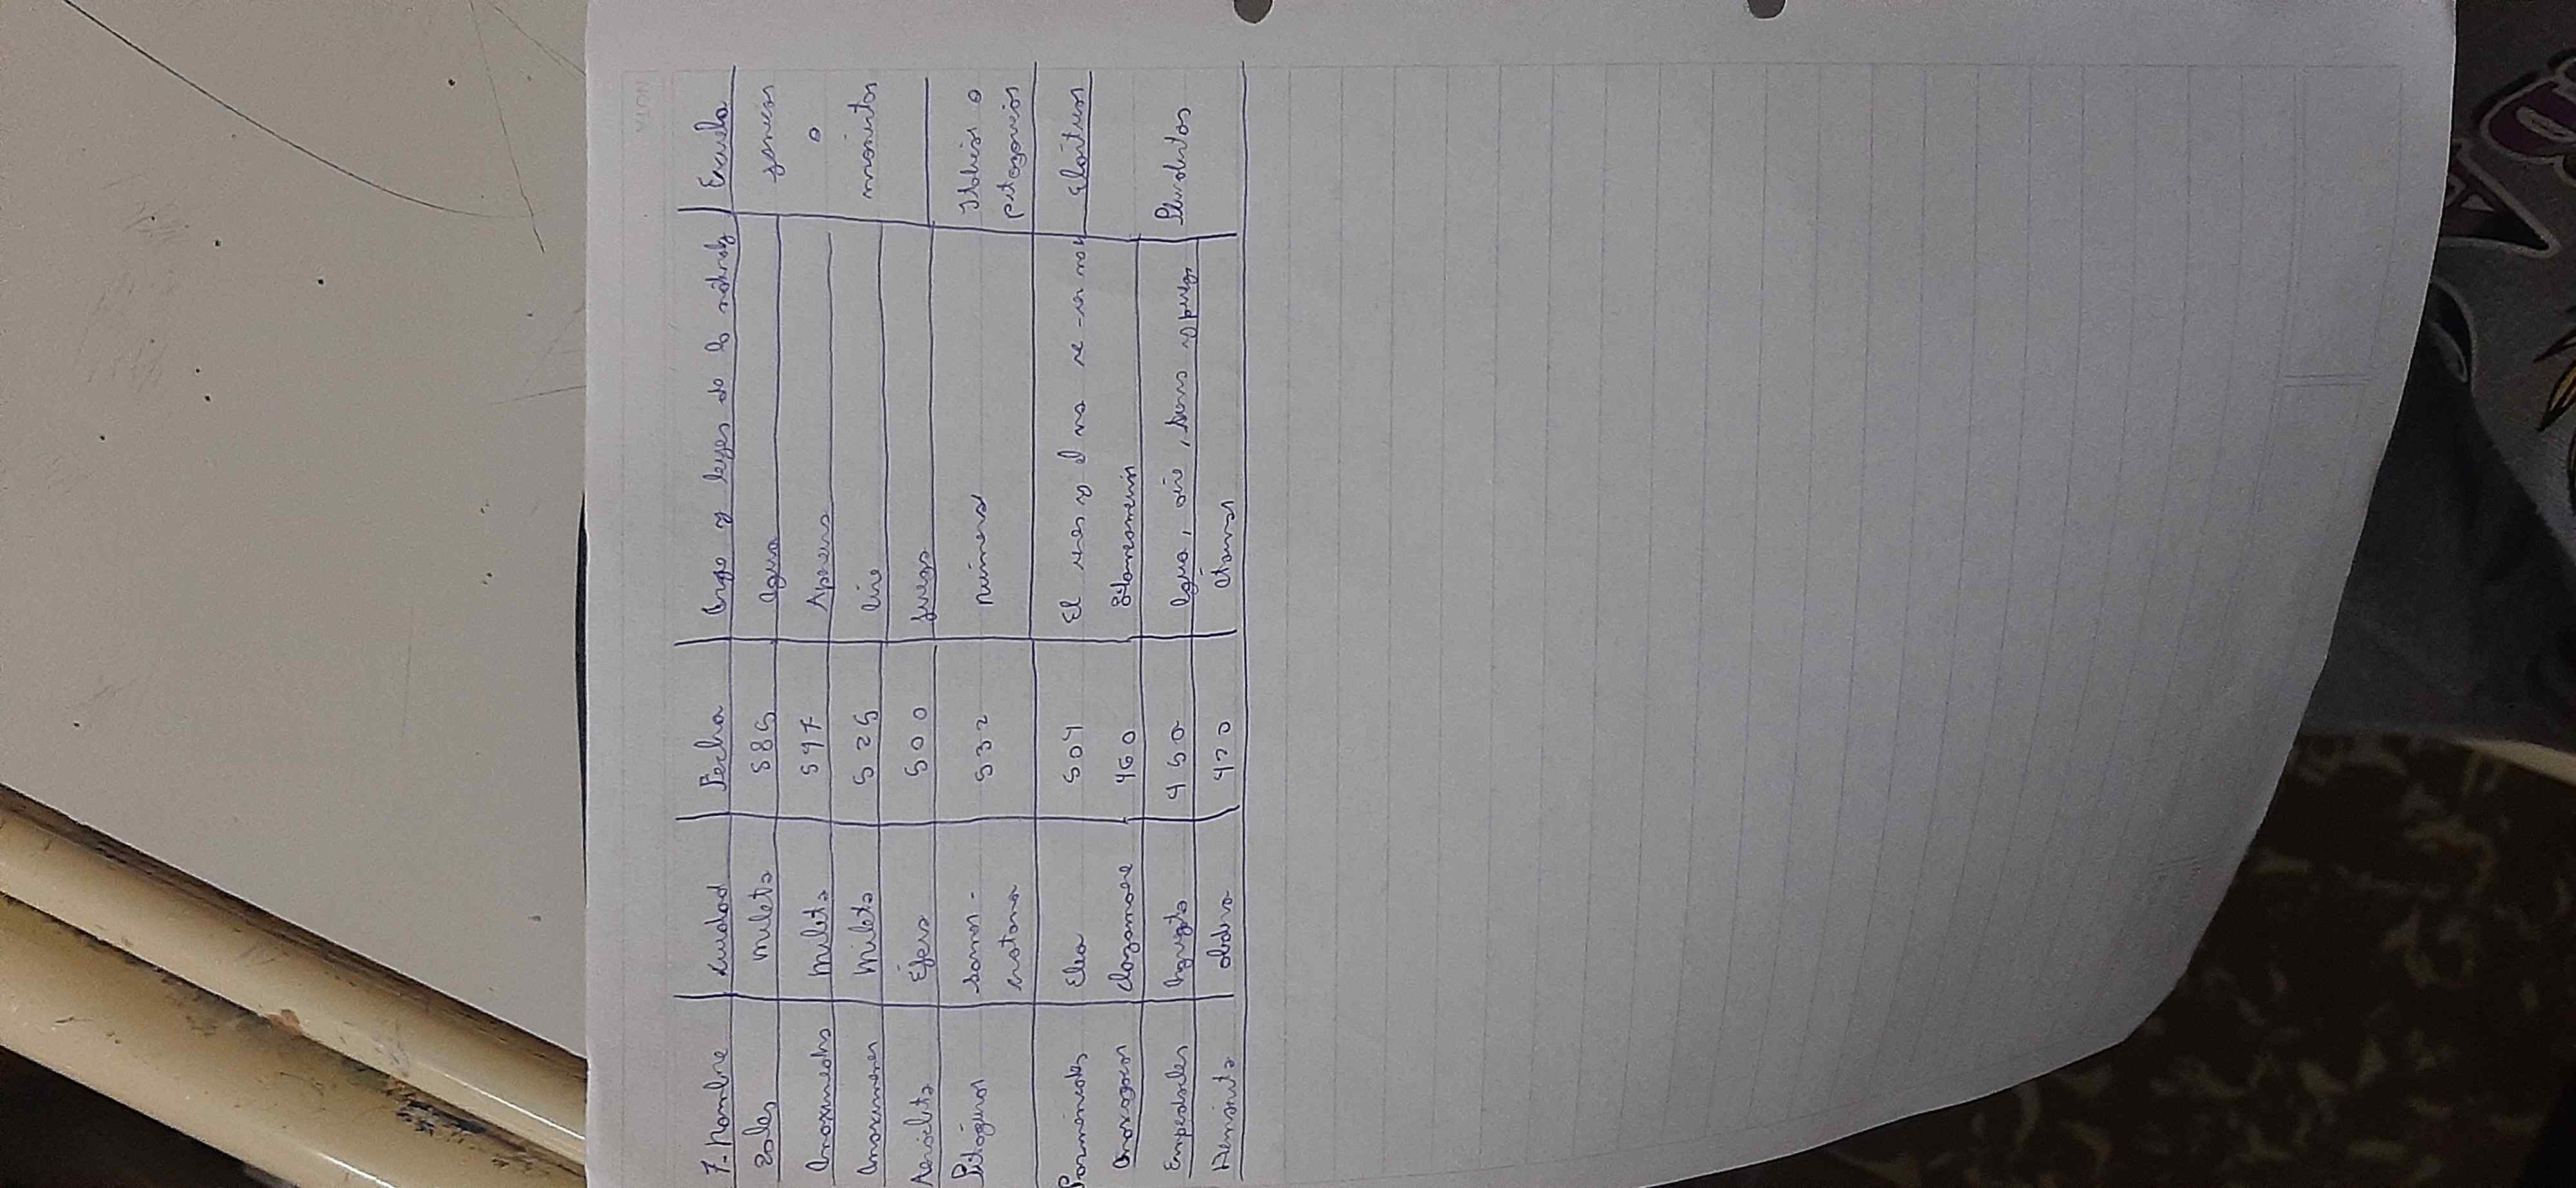 7- Nombre Ciudad Fecha Origen y leyes de la naturaleza Escuela
Tales Mileto 585 Agua Jonicos
Anaximandro Mileto 547 Apeiron o
Anaximenes Mileto 525 Aire monistas
Heráclito Éfeso 500 fuego
Pitágoras Samos - 532 números Itálicos o
crotona pitagoricos
Parmenides Elea 504 El ser es y el no ser no es Eleáticos
Anaxagoras clazomene 460
Empedocles Agrigento 450 Agua, aire, tierra y fuego Pluralistas
Demócrito abdera 420 átomos